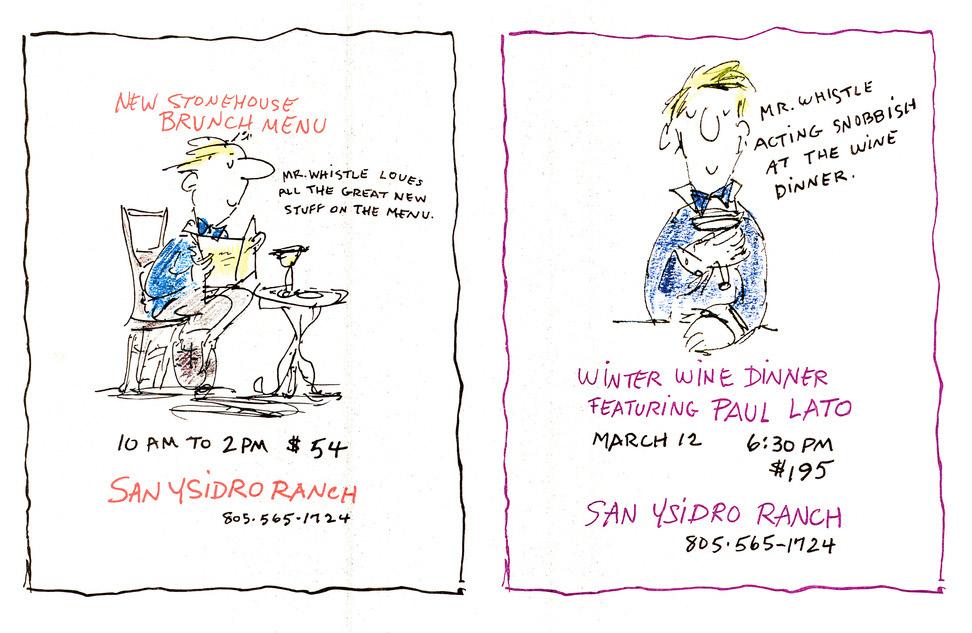 NEW STONEHOUSE
BRUNCH MENU
MR. WHISTLE LOVES
ALL THE GREAT NEW
STUFF ON THE MENU.
10 AM TO 2 PM $54
SAN YSIDRO RANCH
805·565-1724
MR. WHISTLE
ACTING SNOBBISH
AT THE WINE
DINNER.
WINTER WINE DINNER
FEATURING PAUL LATO
MARCH 12 6:30 PM
$195
SAN YSIDRO RANCH
805·565-1724